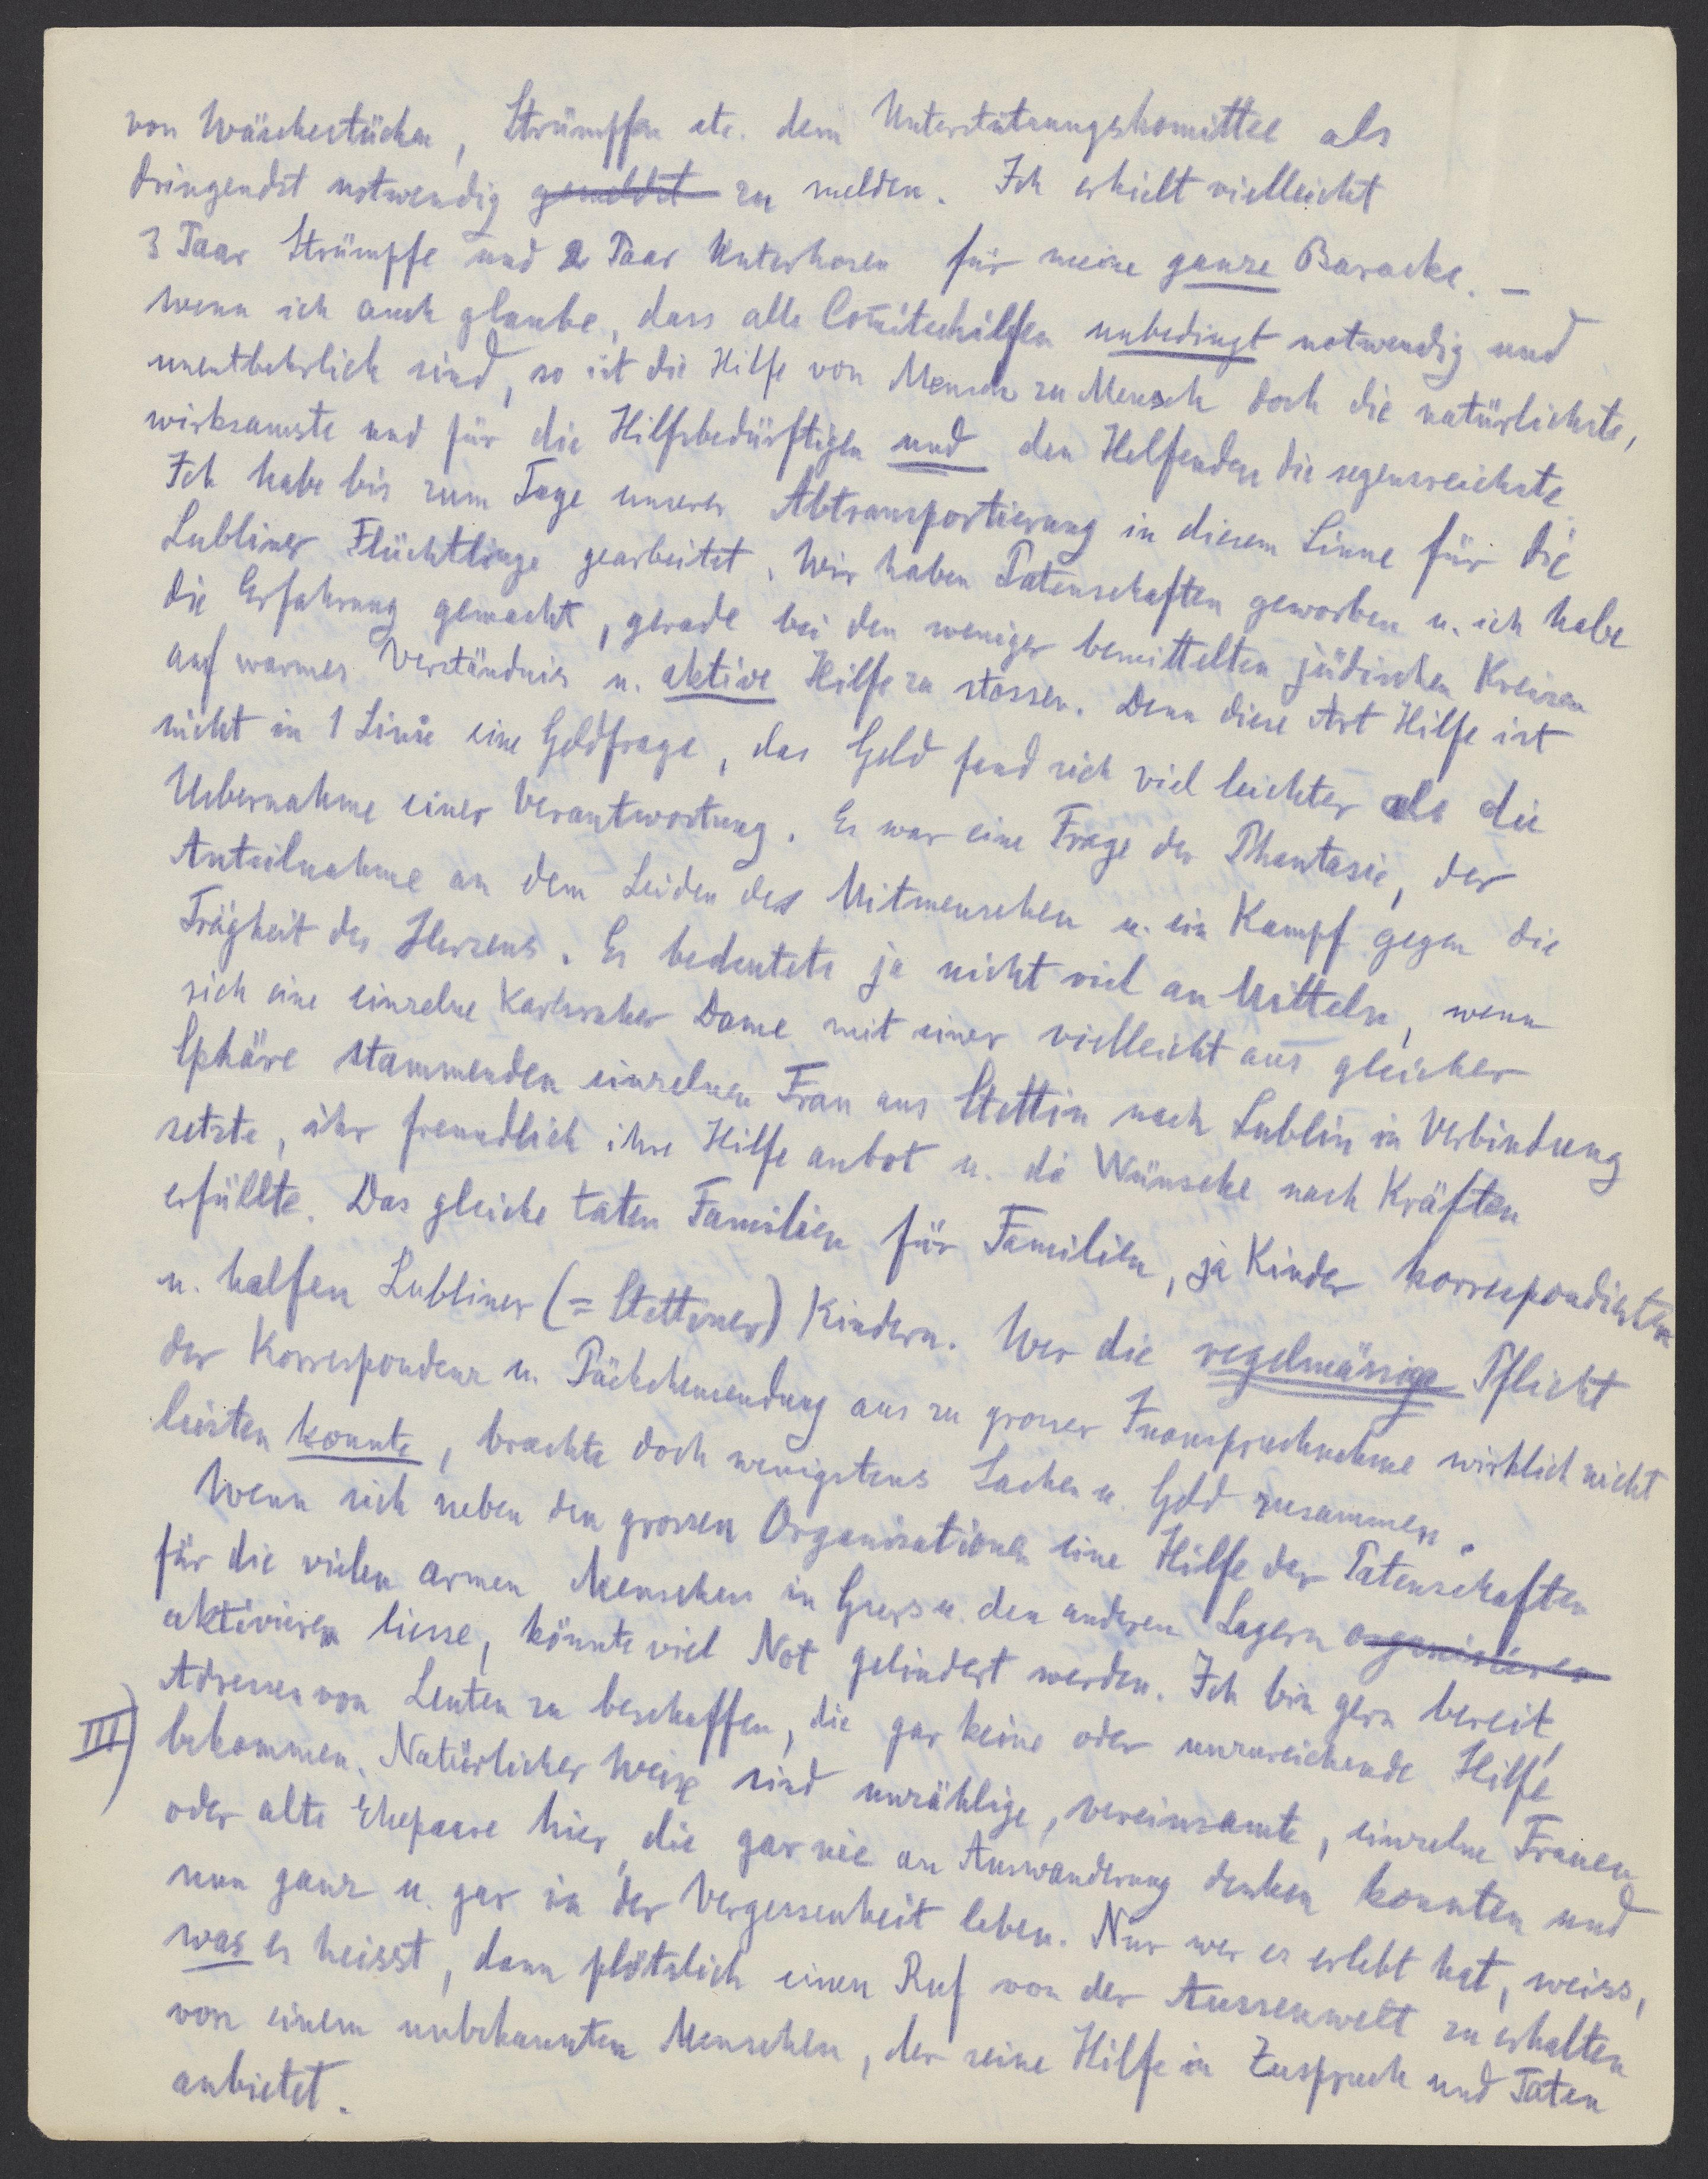 von Wäschestücken, Strümpfen etc. dem Unterstützungskomittee als
dringendst notwendig gemeldet zu melden. Ich erhielt vielleicht
3 Paar Strümpfe und 2 Paar Unterhosen für meine ganze Baracke. –
Wenn ich auch glaube, dass alle Comiteehilfen unbedingt notwendig und
unentbehrlich sind, so ist die Hilfe von Mensch zu Mensch doch die natürlichste,
wirksamste und für die Hilfsbedürftigen und den Helfenden die segensreichste.
Ich habe bis zum Tage unserer Abtransportierung in diesem Sinne für die
Lubliner Flüchtlinge gearbeitet. Wir haben Patenschaften geworben u. ich habe
die Erfahrung gemacht, gerade bei den weniger bemittelten jüdischen Kreisen
auf warmes Verständnis u. aktive Hilfe zu stossen. Denn diese Art Hilfe ist
nicht in 1 Linie eine Geldfrage, das Geld fand sich viel leichter als die
Uebernahme einer Verantwortung. Es war eine Frage der Phantasie, der
Anteilnahme an dem Leiden des Mitmenschen u. ein Kampf gegen die
Trägheit des Herzens. Es bedeutete ja nicht viel an Mitteln, wenn
sich eine einzelne Karlsruher Dame mit einer vielleicht aus gleicher
Sphäre stammenden einzelnen Frau aus Stettin nach Lublin in Verbindung
setzte, ihr freundlich ihre Hilfe anbot u. die Wünsche nach Kräften
erfüllte. Das gleiche taten Familien für Familien, ja Kinder korrespondierten
u. halfen Lubliner (= Stettiner) Kindern. Wer die regelmässige Pflicht
der Korrespondenz u. Päckchensendung aus zu grosser Inanspruchnahme wirklich nicht
leisten konnte, brachte doch wenigstens Sachen u. Geld zusammen.
Wenn sich neben den grossen Organisationen eine Hilfe der Patenschaften
für die vielen armen Menschen in Gurs u. den anderen Lagern organisieren
aktivieren liesse, könnte viel Not gelindert werden. Ich bin gern bereit,
Adressen von Leuten zu beschaffen, die gar keine oder unzureichende Hilfe
III) bekommen. Natürlicher Weise sind unzählige, vereinsamte, einzelne Frauen
oder alte Ehepaare hier, die gar nie an Auswanderung denken konnten und
nun ganz u. gar in der Vergessenheit leben. Nur wer es erlebt hat, weiss,
was es heisst, dann plötzlich einen Ruf von der Aussenwelt zu erhalten
von einem unbekannten Menschen, der seine Hilfe in Zuspruch und Taten
anbietet.